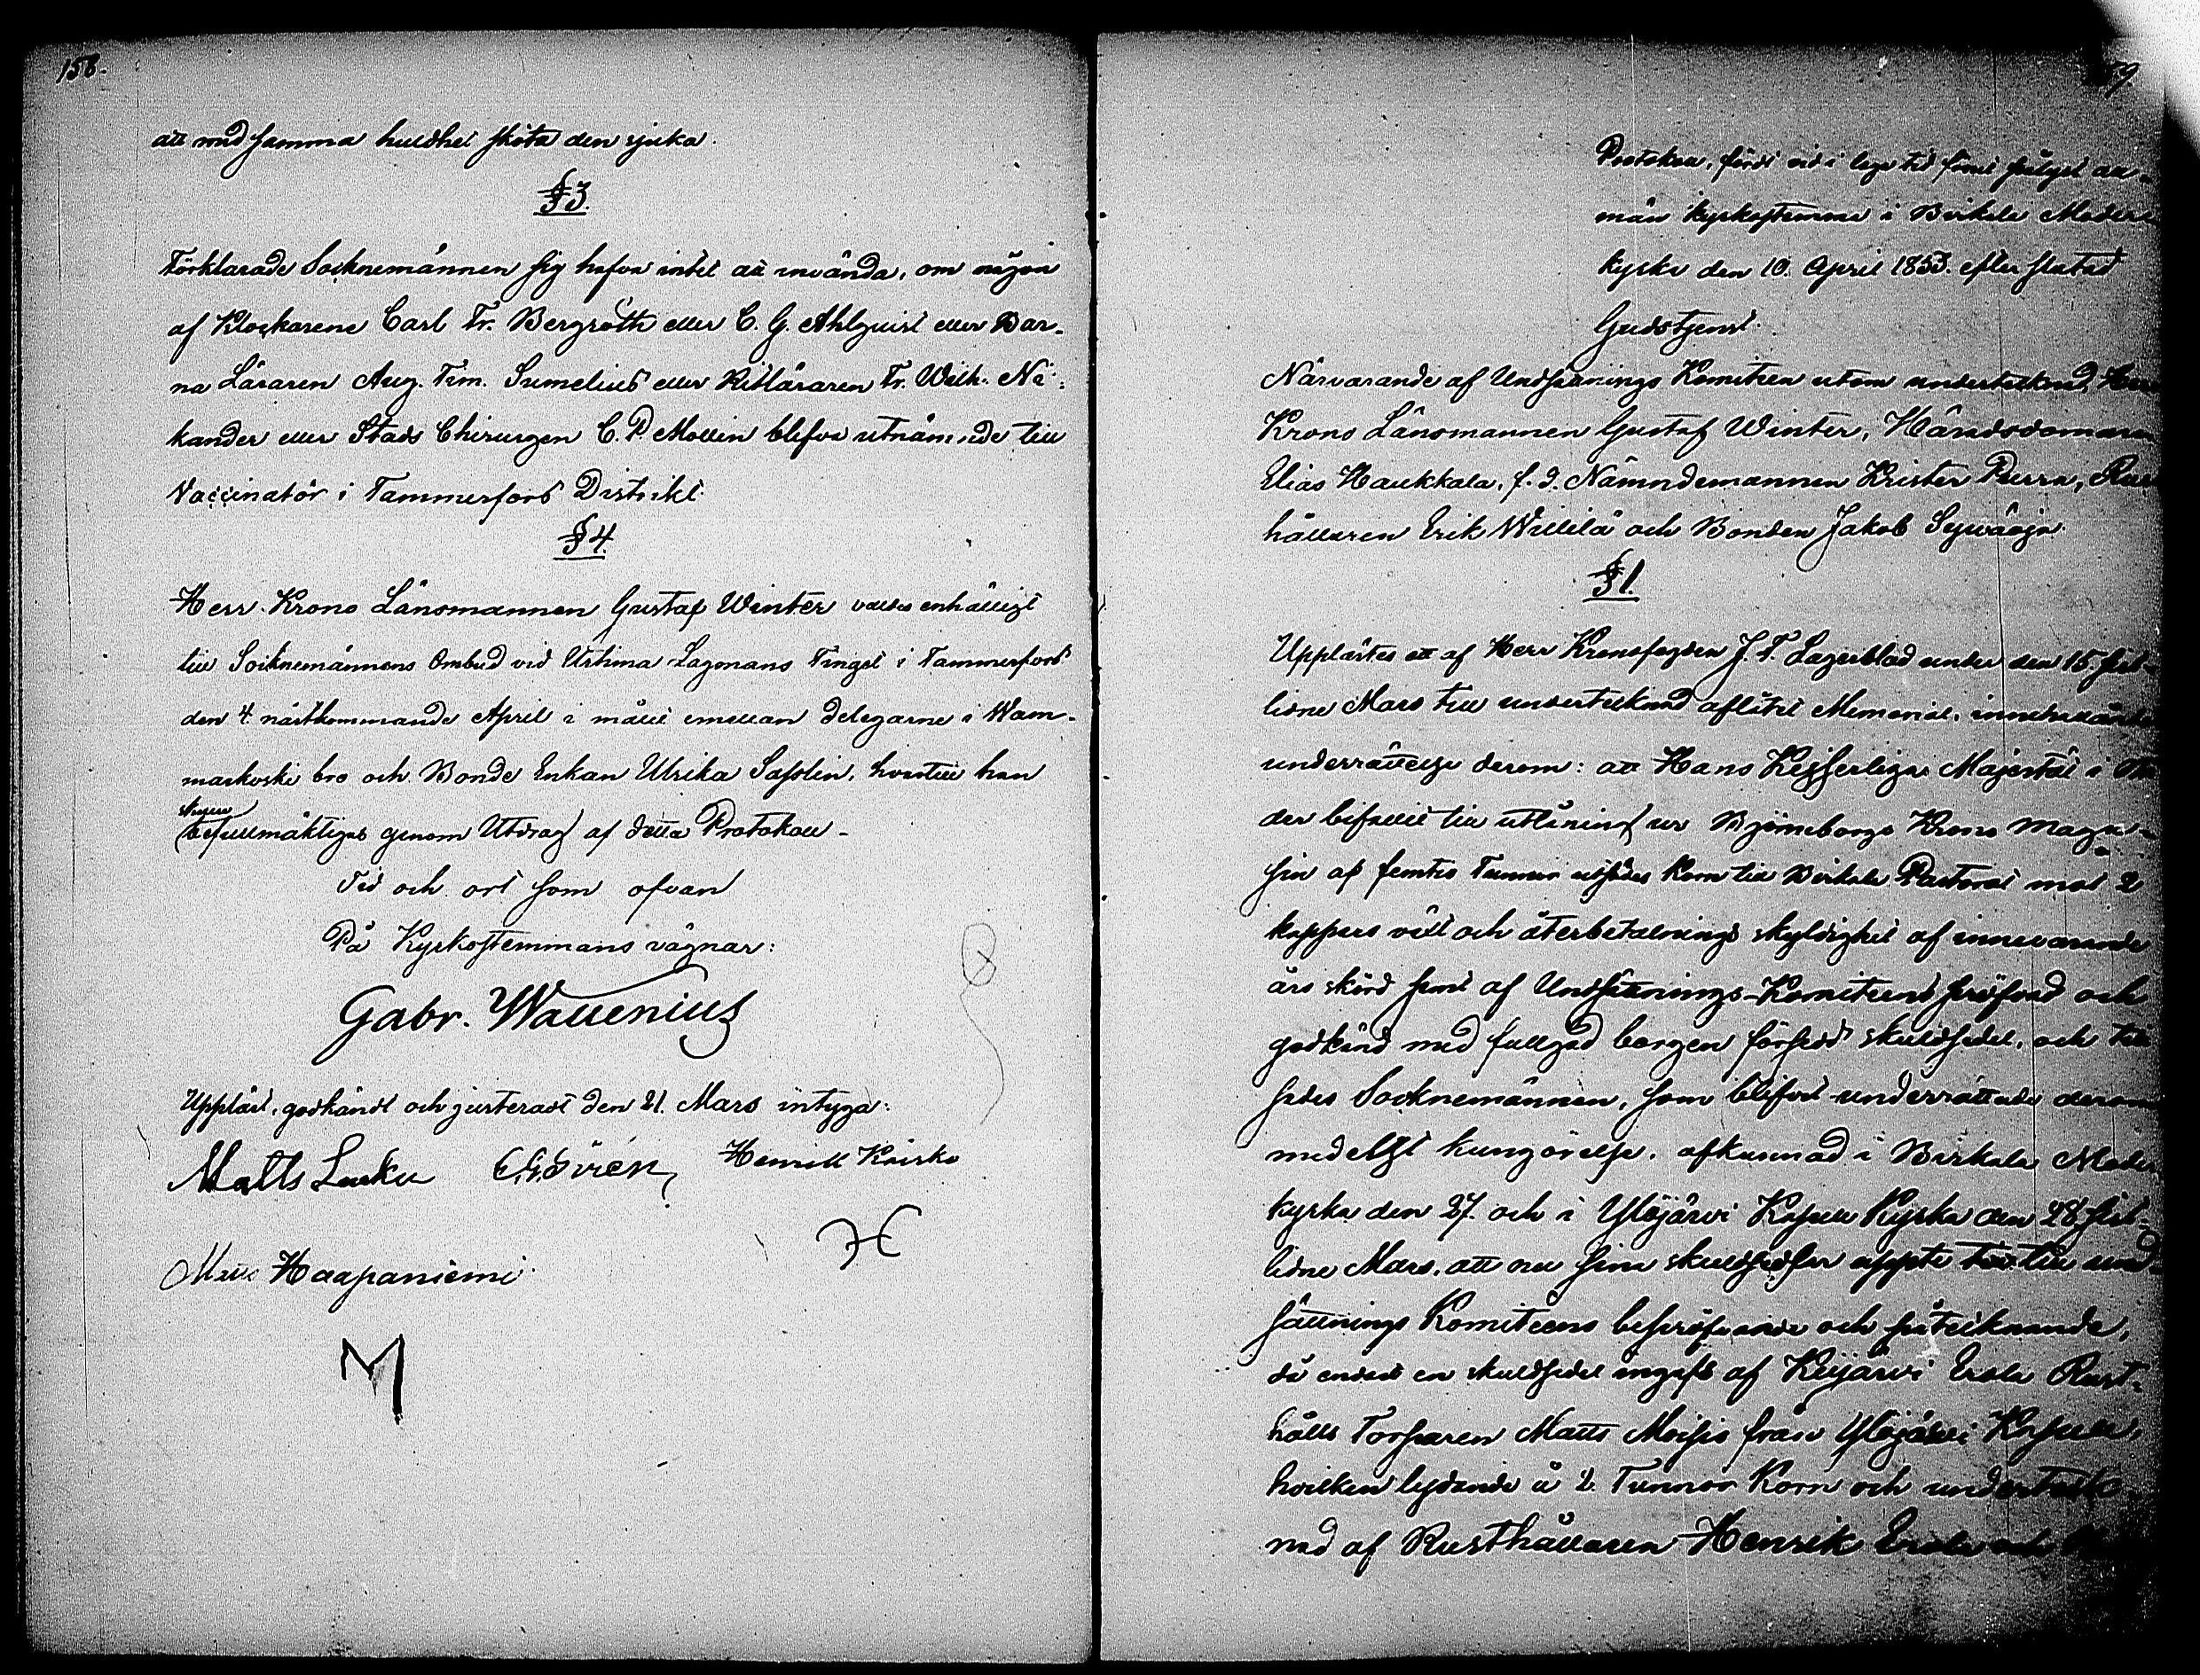 158.
att med samma huldhet sköta den sjuka.
§3.
Förklarade Socknemännen sig hafva intet att invända, om någon
af Klockarene Carl Fr. Bergroth eller C. G. Ahlquist eller Bar-
na Läraren Aug. Fim. Sumelius eller Ritläraren Fr. Wilh. Ni-
kander eller Stads Chirurgen C. P. Mollin blefve utnämnde till
Vaccinatör i Tammerfors Distrikt.
§4.
Herr Krono Länsmannen Gustaf Winter valdes enhälligt
till Socknemännens Ombud vid Urtima Lagmans Tinget i Tammerfors
den 4. nästkommande April i målet emellan delegarne i Wam-
maskoski bro och Bonde Enkan Ulrika Sasslin, hvartill han
skulle
befullmäktigas genom Utdrag af detta Protokoll.
Tid och ort som ofvan
På Kyrkostemmans vägnar:
Gabr. Wallenius
Uppläst, godkändt och justeradt den 21. Mars intyga:
Matts Luku Henrik Kairko
H
Matts Haapaniemi
M
159
Protokoll, fördt vid i laga tid förut pålyst all-
män kyrkostemma i Birkala Moder
kyrka den 10. April 1853. efter slutad
Gudstjenst.
Närvarande af Undsättnings Komitéen utom undertecknad, Herr
Krono Länsmannen Gustaf Winter, Häradsdomaren
Elias Haukkala, f. d. Nämndemannen Krister Purra, Rust
hållaren Erik Willilä och Bonden Jakob Sywäoja.
§1.
Upplästes ett af Herr Kronofogden J. F. Lagerblad under den 15. sist-
lidne Mars till undertecknad aflåtet Memorial, innehållande
underrättelse derom: att Hans Kejserliga Majestät i Nå
der bifallit till utlåning ur Björneborgs Krono Maga-
sin af femtio Tunnor utsädes Korn till Birkala Pastorat mot 2
kappars vält och återbetalnings skyldighet af innevarande
års skörd samt af Undsättnings-Komitéens pröfvad och
godkänd med fullgod borgen försedd skuldsedel, och till
sades Socknemännen, som blifvit underrättade derom
medelst kungörelse, afkunnad i Birkala Moder
kyrka den 27. och i Ylöjärvi Kapell Kyrka den 28. sist-
lidne Mars, att nu sina skuldsedlar uppte till und
sättnings Komitéens bepröfvande och påtecknande,
då endast en skuldsedel ingafs af Keijärvi Erola Rust-
hålls Torparen Matts Moisio från Ylöjärvi Kapell,
hvilken lydande å 2. Tunnor Korn och underteck-
nad af Rusthållaren Henrik Erola och